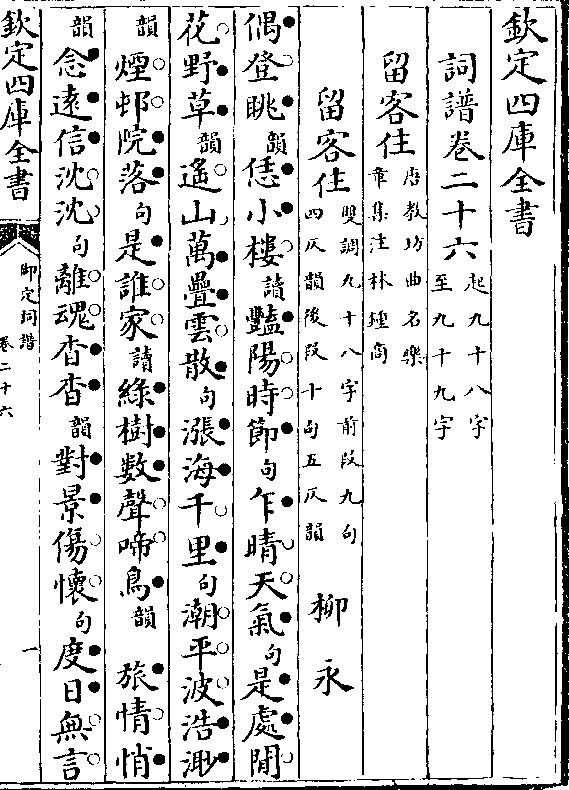 欽定四庫全書
詞譜卷二十六 起九十八字至九十九字
留客住 唐教坊曲名樂章集注林鍾商
留客住 雙調九十八字前段九句四仄韻後段十句五仄韻 柳永
偶登眺韻恁小樓讀豔陽時節句乍晴天氣句是處閒
花野草韻遙山萬疊雲散句漲海千里句潮平波浩渺
韻煙邨院落句是誰家讀綠樹數聲啼鳥韻 旅情悄
韻念遠信沈沈句離魂杳杳韻對景傷懷句度日無言
欽定四庫全書 御定詞譜 卷二十六 一